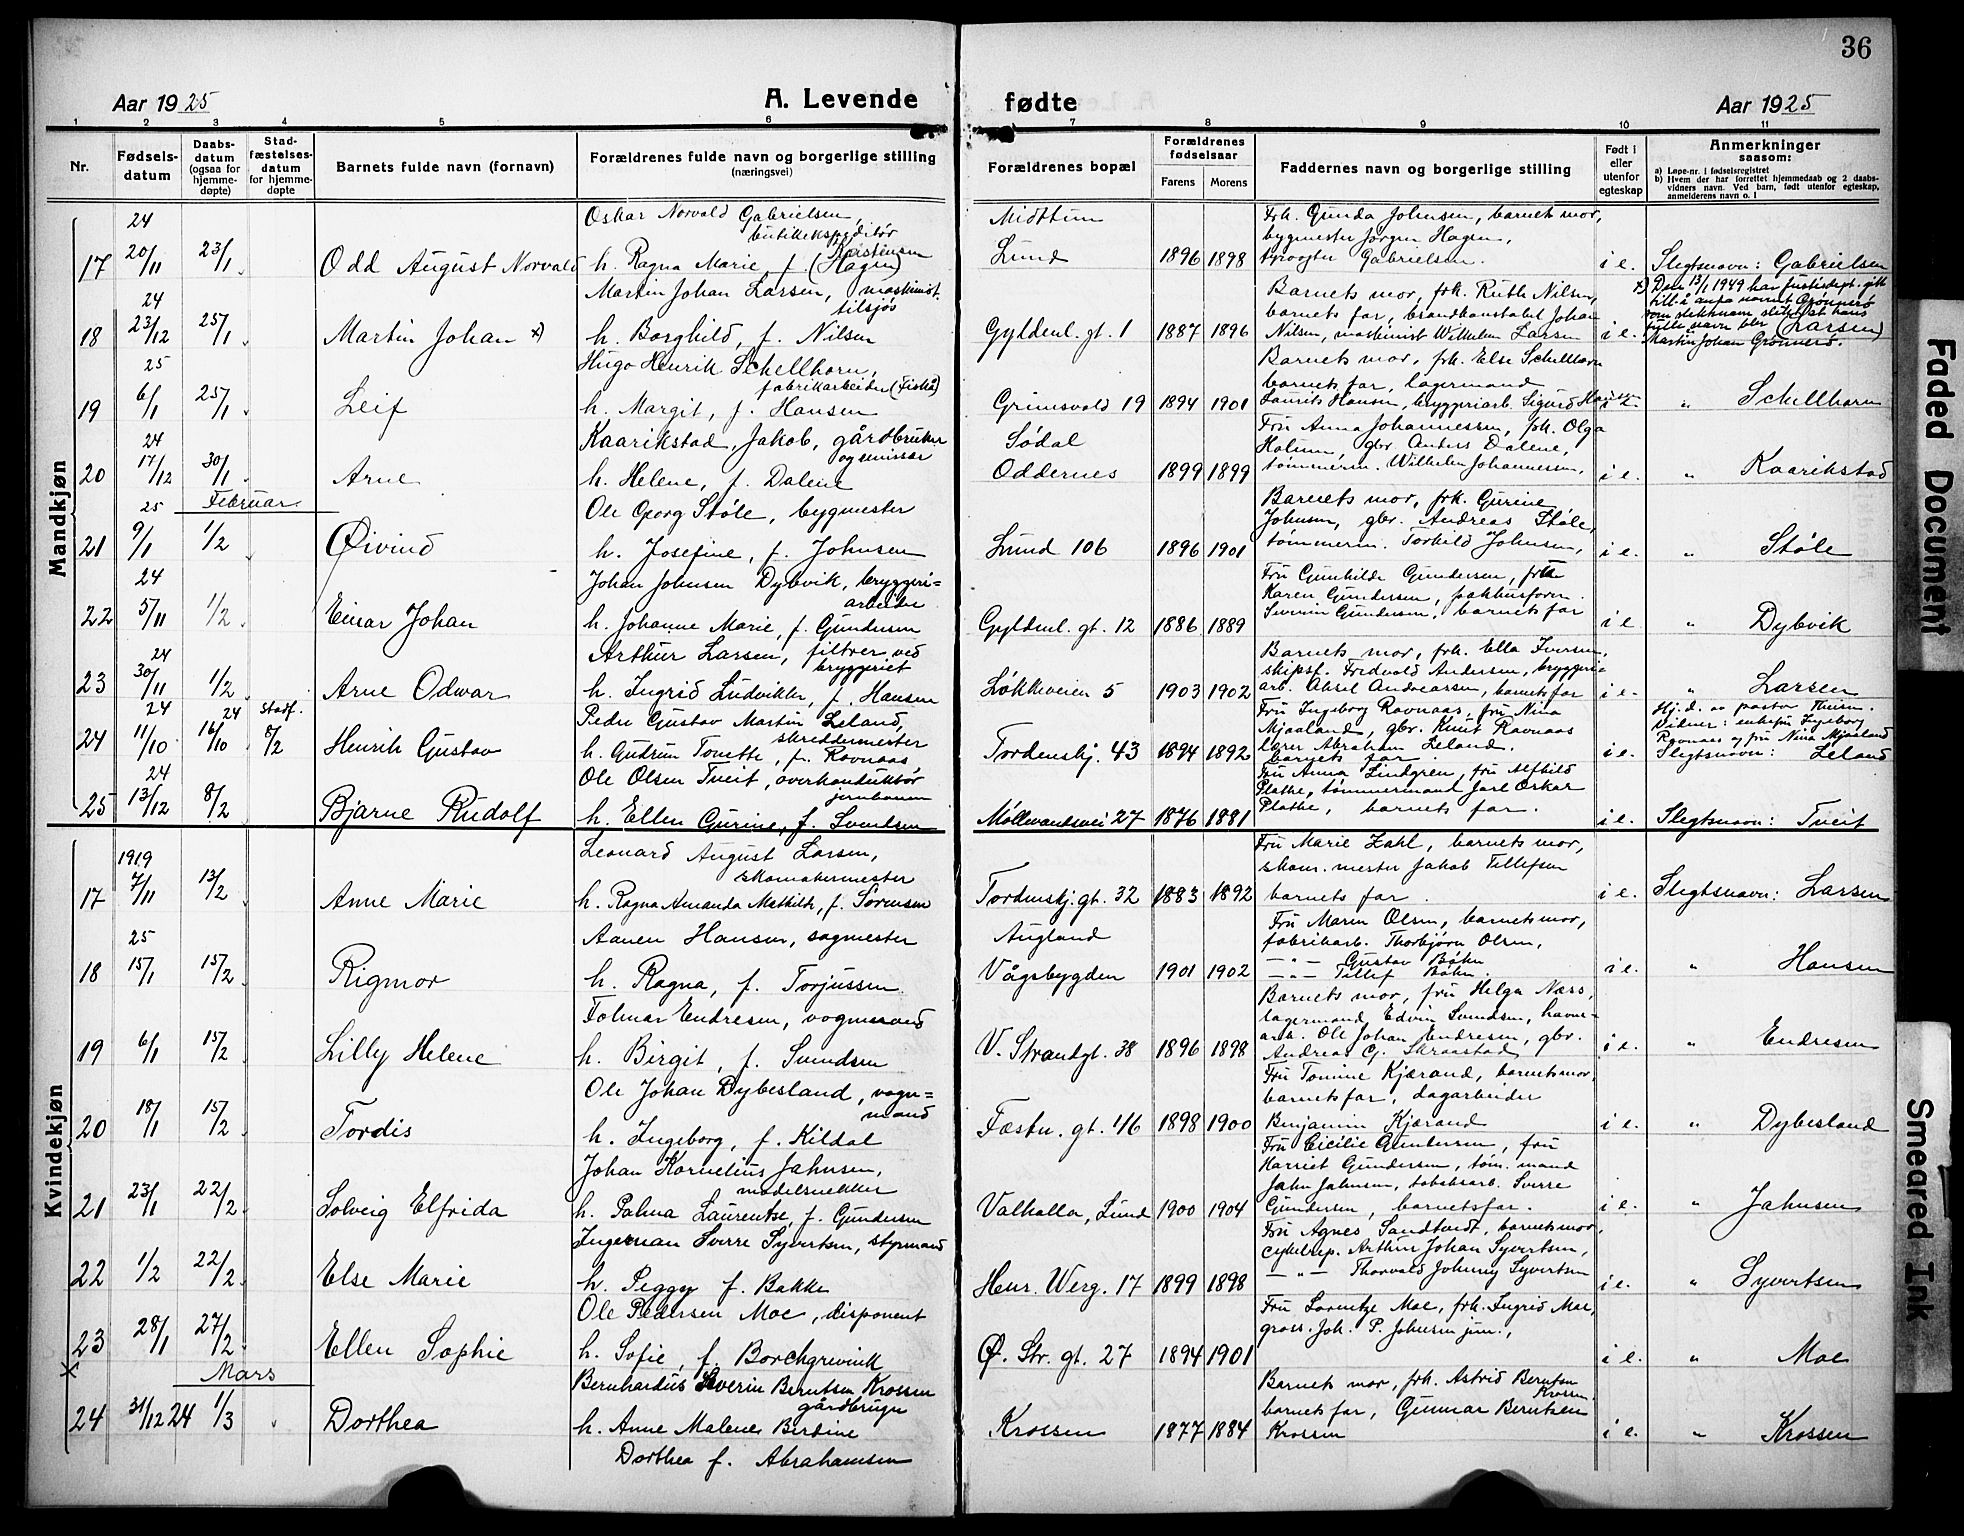 36
Aar 1925
A. Levende
fødte
Aar 1925
1 2 3 4 5 6 7 8 9 10 11
Nr.
Fødsels-
datum
Daabs-
datum
(ogsaa for
hjemme-
døpte)
Stad-
fæstelses-
datum
for hjemme-
døpte
Barnets fulde navn (fornavn)
Forældrenes fulde navn og borgerlige stilling
(næringsvei)
Forældrenes bopæl
Forældrenes
fødselsaar
Farens Morens
Faddernes navn og borgerlige stilling
Født i
eller
utenfor
egteskap
Anmerkninger
saasom:
a) Løpe-nr. i fødselsregistret
b) Hvem der har forrettet hjemmedaab og 2 daabs-
vidners navn. Ved barn, født utenfor egteskap,
anmelderens navn o. l
Mandkjøn
24
17 20/11 23/1 Odd August Norvald
Oskar Norvald Gabrielsen,
butikekspeditør
h. Ragna Marie, f. (Hagen) Karstensen
Midttun
Lund 1896 1898
Frk. Gunda Johnsen, barnets mor,
bygmester Jørgen Hagen,
Gabrielsen.
i e. Slegtsnavn: Gabrielsen
24
18 23/12 25/1 Martin Johan x)
Martin Johan Larsen, maskinist
tilsjøs
h. Borghild, f. Nilsen
Gyldenl. gt. 1 1887 1896
Barnets mor, frk. Ruth Nilsen,
barnets far, brandkonstabel Johan
Nilsen, maskinist Wilhelm Larsen
i e.
x) Den 13/1 1949 har justisdept. gitt
till. å anta navnet Grønnerø
som slektsnavn slik at hans
fulle navn blir (Larsen)
Martin Johan Grønnerø.
25
19 6/1 25/1 Leif
Hugo Henrik Schellhorn,
fabrikarbeider (Fiskå)
h. Margit, f. Hansen
Grimsvold 19 1894 1901
Barnets mor, frk. Else Schellhorn
barnets far, lagermand
Laurits Hansen, bryggeriarb. Sigurd Hansen
i e. " Schellhorn
24
20 17/12 30/1 Arne
Kaarikstad, Jakob, gårdbruker
og emissær
h. Helene, f. Dalene
Sødal
Oddernes 1899 1899
Fru Anna Johannessen, frk. Olga
Holum, gbr. Anders Dalene,
tømmerm. Wilhelm Johannessen,
i e. " Kaarikstad
Februar
25
21 9/1 1/2 Øivind
Ole Georg Støle, bygmester
h. Josefine, f. Johnsen
Lund 106 1896 1901
Barnets mor, frk. Gurine
Johnsen, gbr. Andreas Støle,
tømmerm. Torkild Johnsen,
i e. " Støle
24
22 5/11 1/2 Einar Johan
Johan Johnsen Dybvik, bryggeri=
arbeider
h. Johanne Marie, f. Gundersen
Gyldenl. gt. 12 1886 1889
Fru Gunhilde Gundersen, frk
Karen Gundersen, pakhusform.
Severin Gundersen, barnets far
i e. " Dybvik
24
23 30/11 1/2 Arne Odvar
Arthur Larsen, filtrer ved
bryggeriet
h. Ingrid Ludvikke, f. Hansen
Løkkeveien 5 1903 1902
Barnets mor, frk. Ella Iversen,
skipsf. Fredvald Andersen, bryggeri-
arb. Aksel Andreassen, barnets far
i e. " Larsen
24 24 Stadf.
24 11/10 16/10 8/2 Henrik Gustav
Peder Gustav Martin Leland,
skreddermester
h. Gudrun Tonette, f. Ravnaas
Tordenskj. 43 1894 1892
Fru Ingeborg Ravnaas, fru Nina
Mjaaland, gbr. Knut Ravnaas
lærer Abraham Leland.
barnets far.
i e.
Hj. d. av pastor Thuen.
Vidner: enkefru Ingeborg
Ravnaas og fru Nina Mjaaland
Slegtsnavn: Leland
24
25 13/12 8/2 Bjarne Rudolf
Ole Olsen Tveit, overkonduktør
jernbanen
h. Ellen Gurine, f. Svendsen
Møllevandsvei 27 1876 1881
Fru Anna Lindgren, fru Alfhild
Plathe, tømmermand Jarl Oskar
Plathe, barnets far.
i e. Slegtsnavn: Tveit
Kvindekjøn
1919
17 7/11 13/2 Anne Marie
Leonard August Larsen,
skomakermester
h. Ragna Amanda Mathilde, f. Sørensen
Tordenskj. gt. 32 1883 1892
Fru Marie Zahl, barnets mor,
skom. mester Jakob Tellefsen
barnets far.
i e. Slegtsnavn: Larsen
25
18 15/1 15/2 Rigmor
Aanen Hansen, sagmester
h. Ragna, f. Torjussen.
Augland
Vågsbygden 1901 1902
Fru Maren Olsen, barnets mor,
fabrikarb. Thorbjørn Olsen,
— " — Gustav Bøhn
— " — Tellef Bøhn.
i e. " Hansen
19 6/1 15/2 Lilly Helene
Folmar Endresen, vognmand
h. Birgit, f. Svendsen
V. Strandgt. 38 1896 1898
Barnets mor, fru Helga Næss,
lagermand Edvin Svendsen, havne-
arb. Ole Johan Endresen, gbr.
Andreas G. Skraastad
i e. " Endresen
20 18/1 15/2 Tordis
Ole Johan Dybesland, vogn=
mand
h. Ingeborg, f. Kildal
Fæstn. gt. 46 1898 1900
Fru Tomine Kjærand, barnets mor,
barnets far, dagarbeider
Benjamin Kjærand
i e. " Dybesland
21 23/1 22/2 Solveig Elfrida
Johan Kornelius Jahnsen,
modelsnekker
h. Palma Laurentze, f. Gundersen
Valhalla, Lund 1900 1904
Fru Cicilie Gundersen, fru
Harriet Gundersen, tøm. mand
Jahn Jahnsen, tobaksarb. Sverre
Gundersen, barnets far.
i e. " Jahnsen
22 1/2 22/2 Else Marie
Ingeman Sverre Syvertsen, styrmand
h. Peggy f. Bakke
Henr. Werg. 17 1899 1898
Fru Agnes Sandtvedt, barnets mor,
cykelrep. Arthur Johan Syvertsen,
— " — Thorvald Johnny Syvertsen
i e. " Syvertsen
23 28/1 27/2 Ellen Sophie
Ole Pedersen Moe, disponent
h. Sofie, f. Borchgrevink
Ø. Str. gt. 27 1894 1901
Fru Lorentze Moe, frk. Ingrid Moe,
gross. Joh. P. Johnsen jun.,
i e. " Moe
x Mars
24 31/12 24 1/3 Dorthea
Bernhardus Severin Berntsen Krossen
gårdbruger
h. Anne Malene Berdine
Dorthea f. Abrahamsen
Krossen 1877 1884
Barnets mor, frk. Astrid Berntsen
Krossen
barnets far, Gunnar Berntsen
Krossen
i e. " Krossen
Faded Document
Smeared Ink